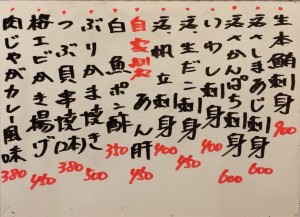 生本鮪刺身 900
活さしまあじ刺身 600
活さかんぱち刺身 600
いわし刺身 400
活生だこ刺身 450
活帆立刺身 400
自家製 あん肝 450
白魚ポン酢 350
ぶりかま焼き 500
つぶ貝串焼(1本) 380
桜エビかき揚げ 450
肉じゃがカレー風味 380